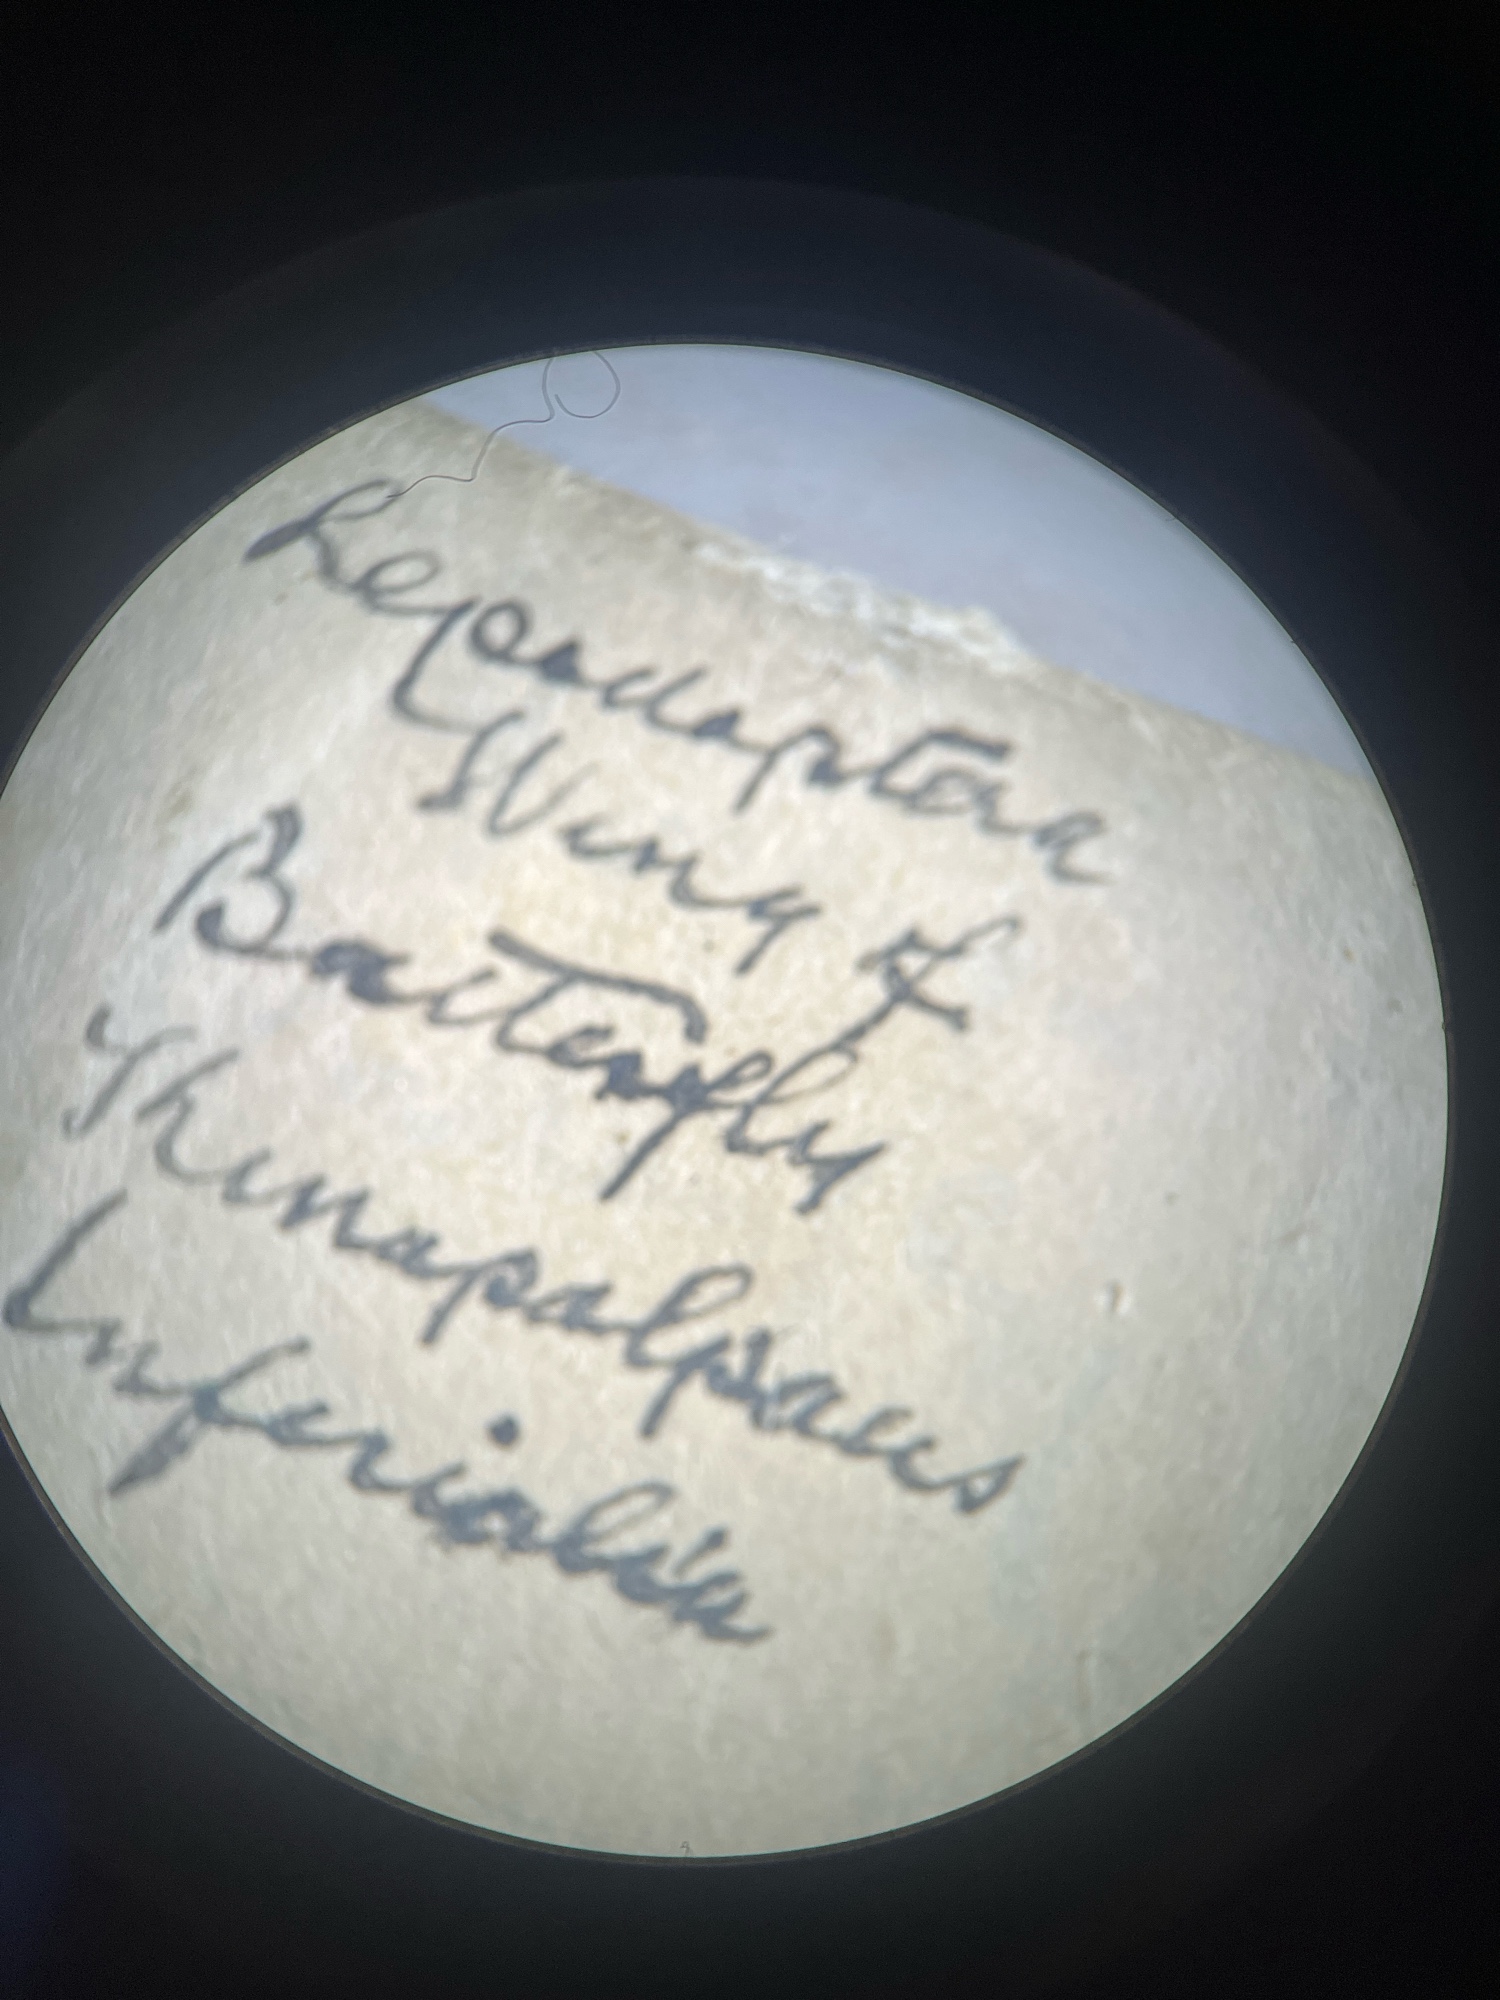 Lepadaptera
Wing of
Batterfly
Thinapalpaus
Inferialia